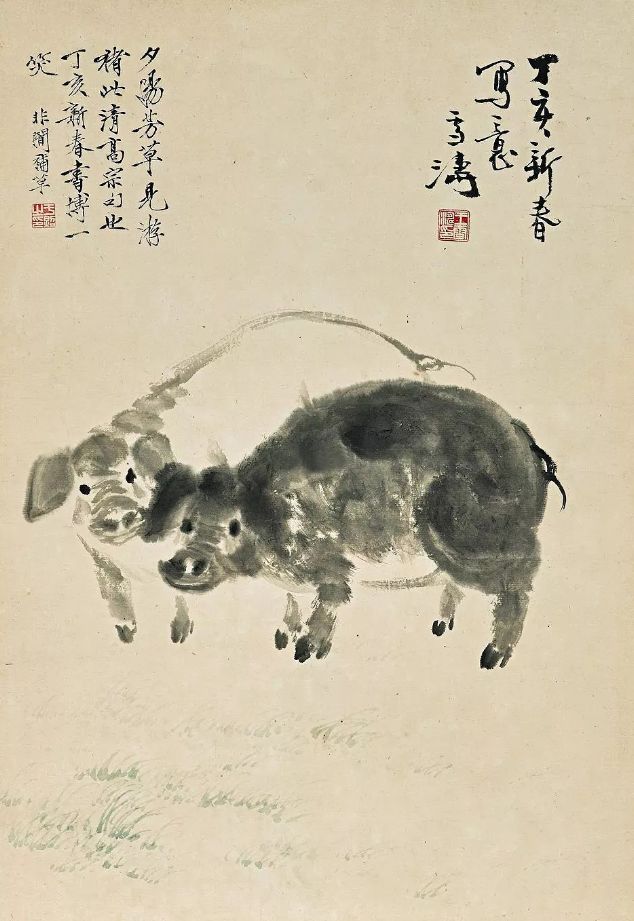 丁亥新春
写意
雪濤
王雪濤印
夕陽芳草見游
猪此清高宗句也
丁亥新春書博一
笑
非闇補草